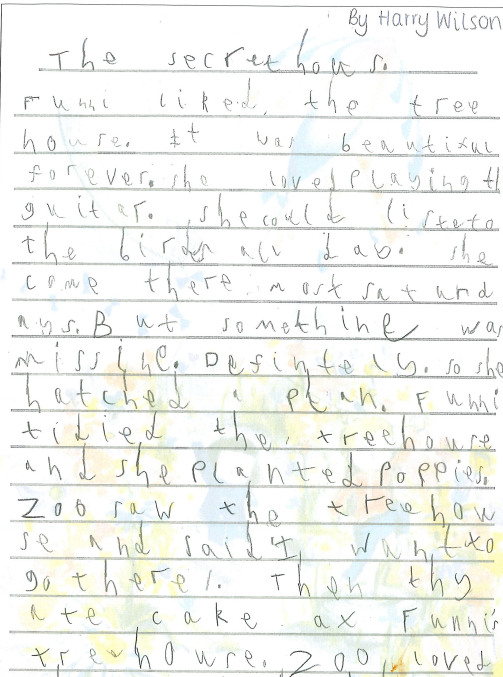 By Harry Wilson
The secret hous.
Funni liked, the tree
house. It was beautiful
forever. she loved playing th
guitar. she could listeto
the birds all day. she
come there most saturd
ays. But somethine was
missine. Defintely. so she
hatched a plan. Funni
tidied the treehouse
and she planted poppies.
Zoo saw the treehou
se and said 'I want to
go there'. Then thy
ate cake ax Funni's
treehouse. Zoo, loved